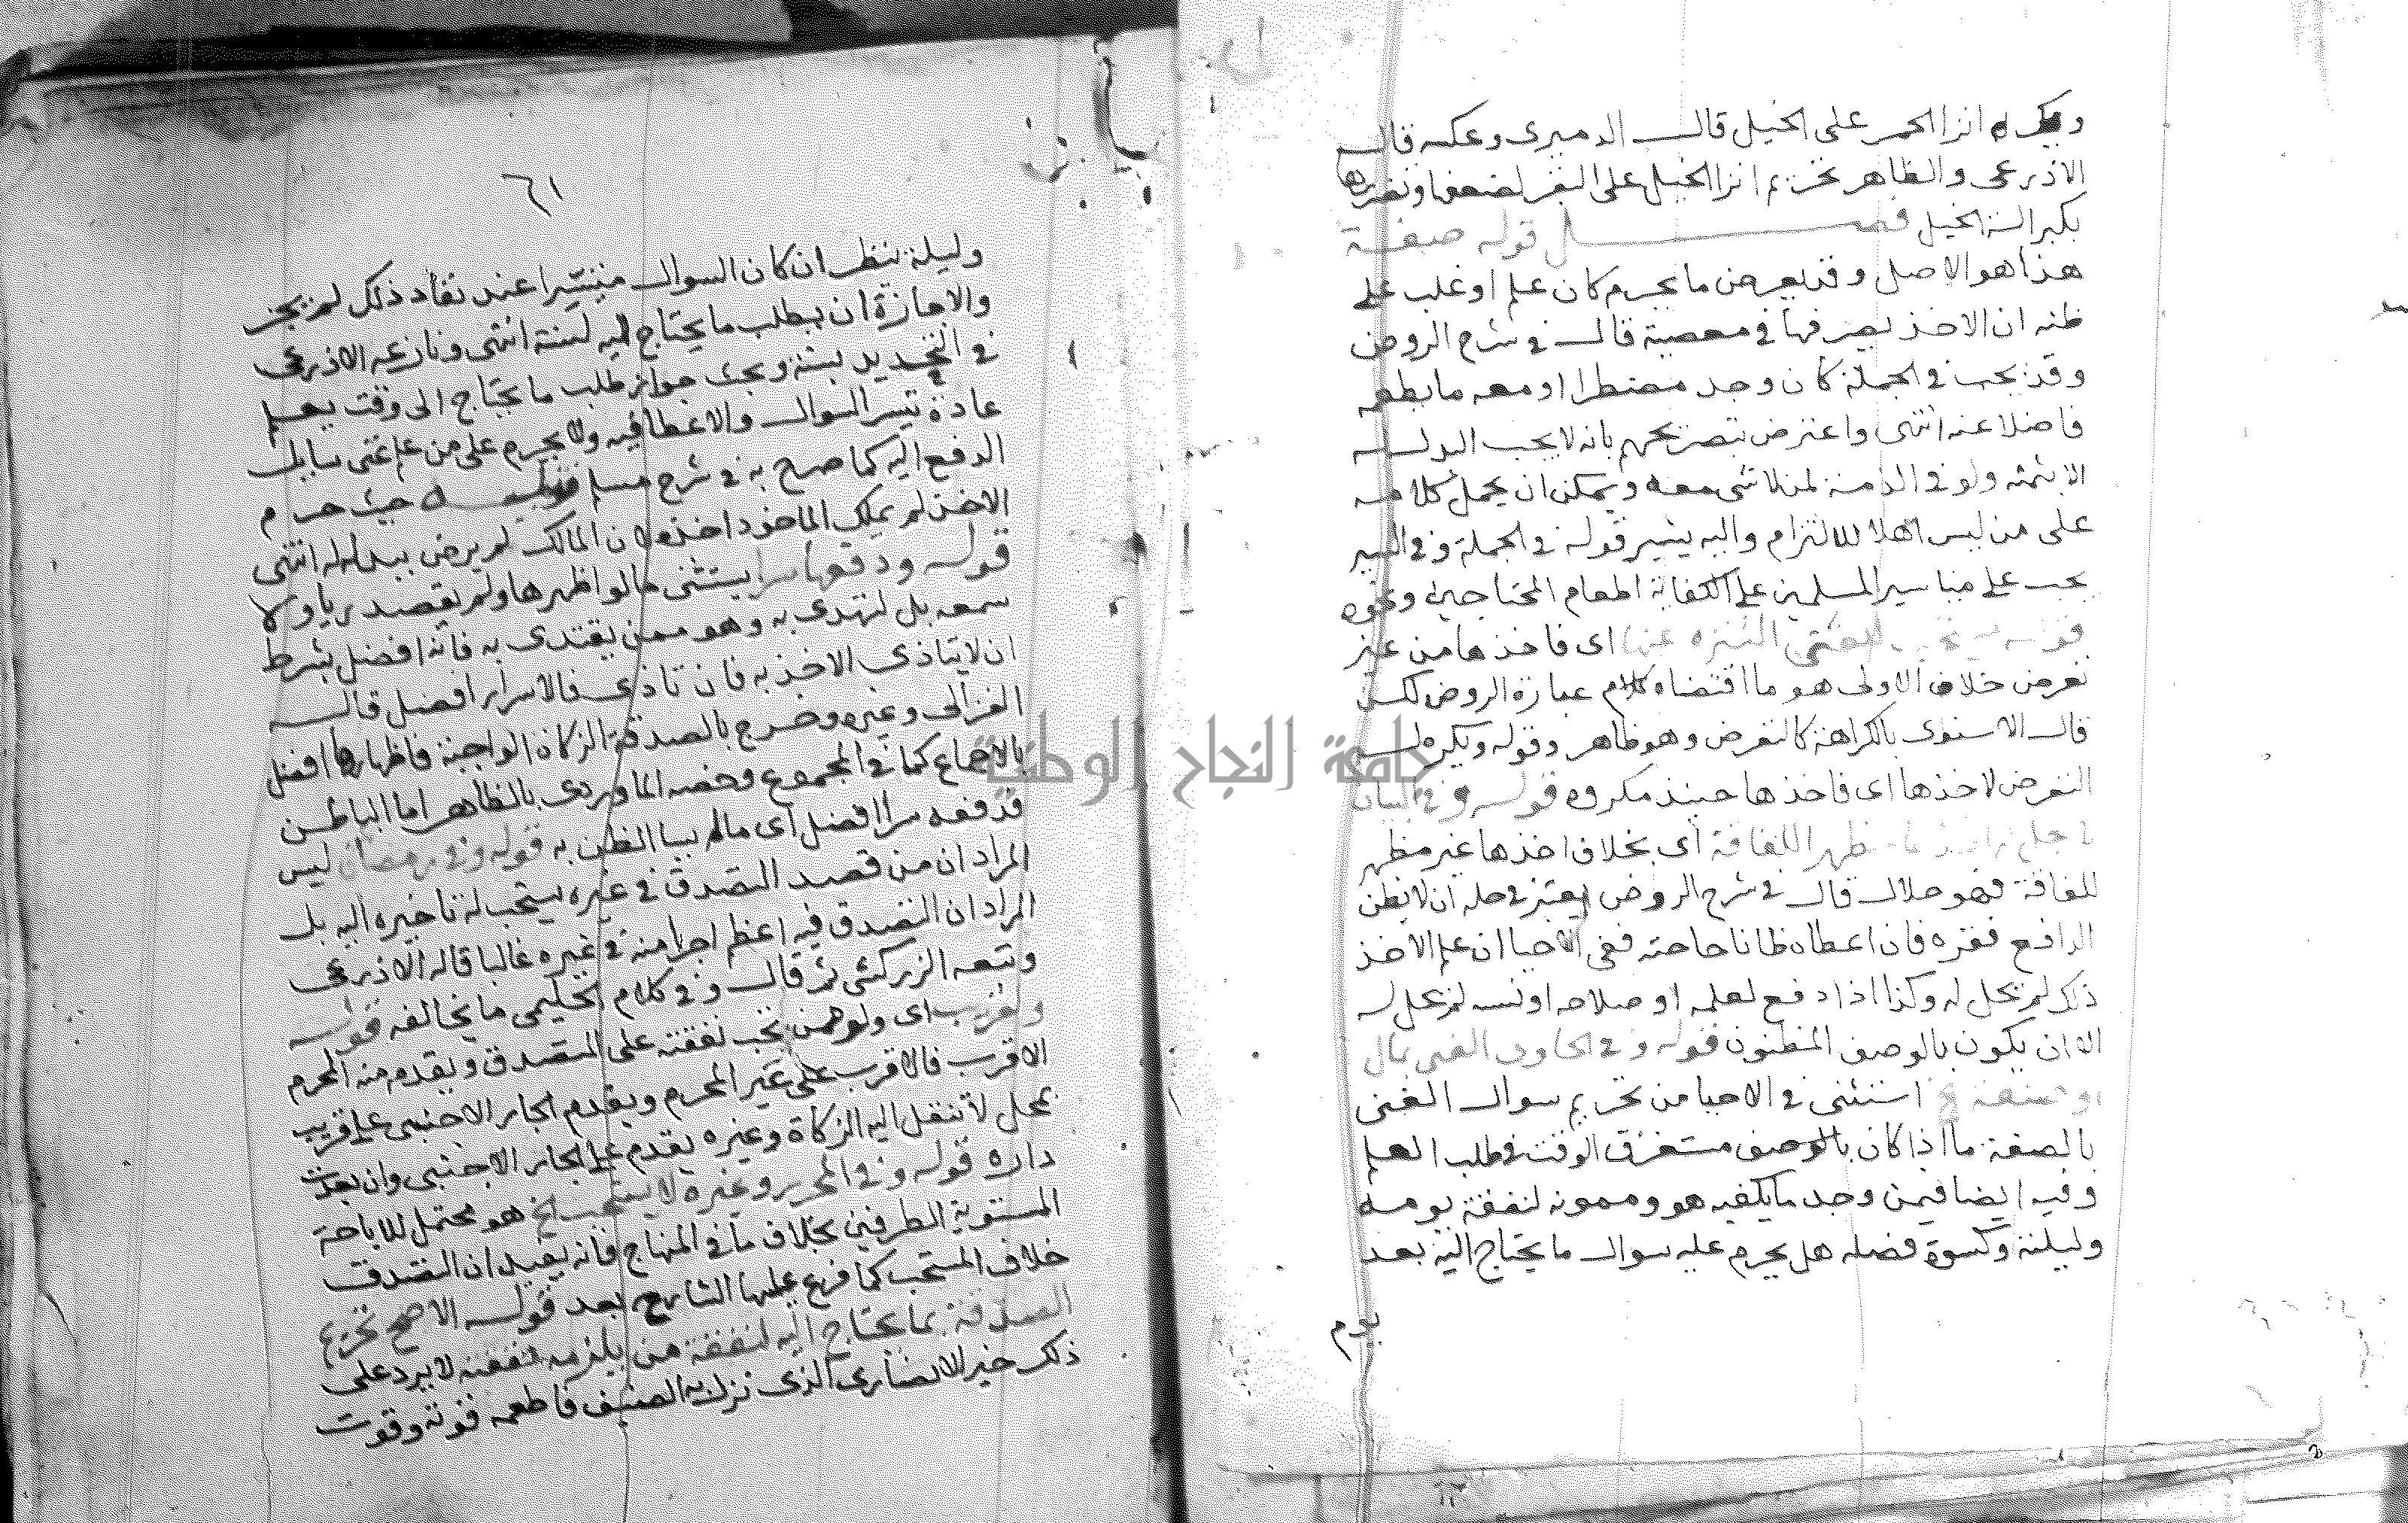 ويكره انزا الحمر على الخيل قال الدميرى وعكسه قال
الاذرعى والظاهر تحريم انزا الخيل على البقر لضعفها وتضررها
بكبر آلة الخيل فصل قوله صدقة
هذا هو الاصل وقد يعرض ما يحرم كان علم او غلب على
ظنه ان الاخذ يصرفها في معصية قال في شرح الروض
وقد يجب في الجملة كان وجد مضطرا ومعه ما يطعمه
فاضلا عنه انتهى واعترض بتصريحهم بانه لا يجب البدل له
الا بثمنه ولو في الذمة لمن لا شى معه ويمكن ان يحمل كلامه
على من ليس اهلا للالتزام واليه يشير قوله في الجملة وفي السير
يجب على مياسير المسلمين على الكفاية اطعام المحتاجين ونحوه
قوله للغنى التنزه عنها اى فاخذها من غير
تعرض خلاف الاولى هو ما اقتضاه كلام عبارة الروض لكن
قال الاسنوى بالكراهة كالتعرض وهو ظاهر وقوله ويكره له
التعرض لاخذها اى فاخذها حينئذ مكروه قوله وفي البيان
مظهر اللفاقة اى بخلاف اخذها غير مظهر
للفاقة فهو حلال قال في شرح الروض يعتبر في حله ان لا يظن
الدافع فقره فان اعطاه ظانا حاجته ففى الاحيا ان علم الاخذ
ذلك لم يحل له وكذا اذا دفع لعلمه او صلاحه او نسبه لم يحل له
الا ان يكون بالوصف المظنون قوله وفي الحاوى الغنى بمال
او صنعة الخ استثنى في الاحيا من تحريم سوال الغنى
بالصفة ما اذا كان بالوصف مستغرق الوقت في طلب العلم
وفيه ايضا فيمن وجد ما يكفيه هو وممونه لنفقة يومه
وليلته وكسوة فضله هل يحرم عليه سوال ما يحتاج اليه بعد
يوم
٦١
وليلة ينظر ان كان السوال متيسرا عند نفاد ذلك لم يجز
والا جازة ان يطلب ما يحتاج اليه لسنة انتهى ونازعه الاذرعى
في التحديد بسنة وبحث جواز طلب ما يحتاج الى وقت يعلم
عادة تيسر السوال والاعطا فيه ولا يحرم على من علم غنى سايل
الدفع اليه كما صرح به في شرح مسلم تنبيه حيث حرم
الاخذ لم يملك الماخوذ اخذه لان المالك لم يرض ببدله له انتهى
قوله ودفعها سرا يستثنى ما لو اظهرها ولم يقصد ريا ولا
سمعه بل ليهتدى به وهو ممن يقتدى به فانه افضل بشرط
ان لا يتاذى الاخذ به فان تاذى فالاسرار افضل قاله
الغزالى وغيره وخرج بالصدقة الزكاة الواجبة فاظهارها افضل
بالاجماع كما في المجموع وخصه الماوردى بالظاهر اما الباطن
فدفعه سرا افضل اى مالم يسا الظن به قوله وفي رمضان ليس
المراد ان من قصد التصدق في غيره يستحب له تاخيره اليه بل
المراد ان التصدق فيه اعظم اجرا منه في غيره غالبا قاله الاذرعى
وتبعه الزركشى ثم قال وفي كلام الحليمى ما يخالفه قوله
ولقريب اى ولو ممن تجب نفقته على المتصدق ويقدم منه المحرم
الاقرب فالاقرب على غير المحرم ويقدم الجار الاجنبى على قريب
بمحل لا تنقل اليه الزكاة وغيره يقدم على الجار الاجنبى وان بعدت
داره قوله وفي المحرر وغيره لا يستحب الخ هو محتمل للاباحة
المستوية الطرفين بخلاف ما في المنهاج فانه يفيد ان التصدق
خلاف المستحب كما فرع عليها الشارح بعد قوله الاصح تحريم
الصدقة بما يحتاج اليه لنفقة من يلزمه نفقته لا يرد على
ذلك خبر الانصارى الذى نزل به الضيف فاطعمه قوته وقوت
جامعة النجاح الوطنية